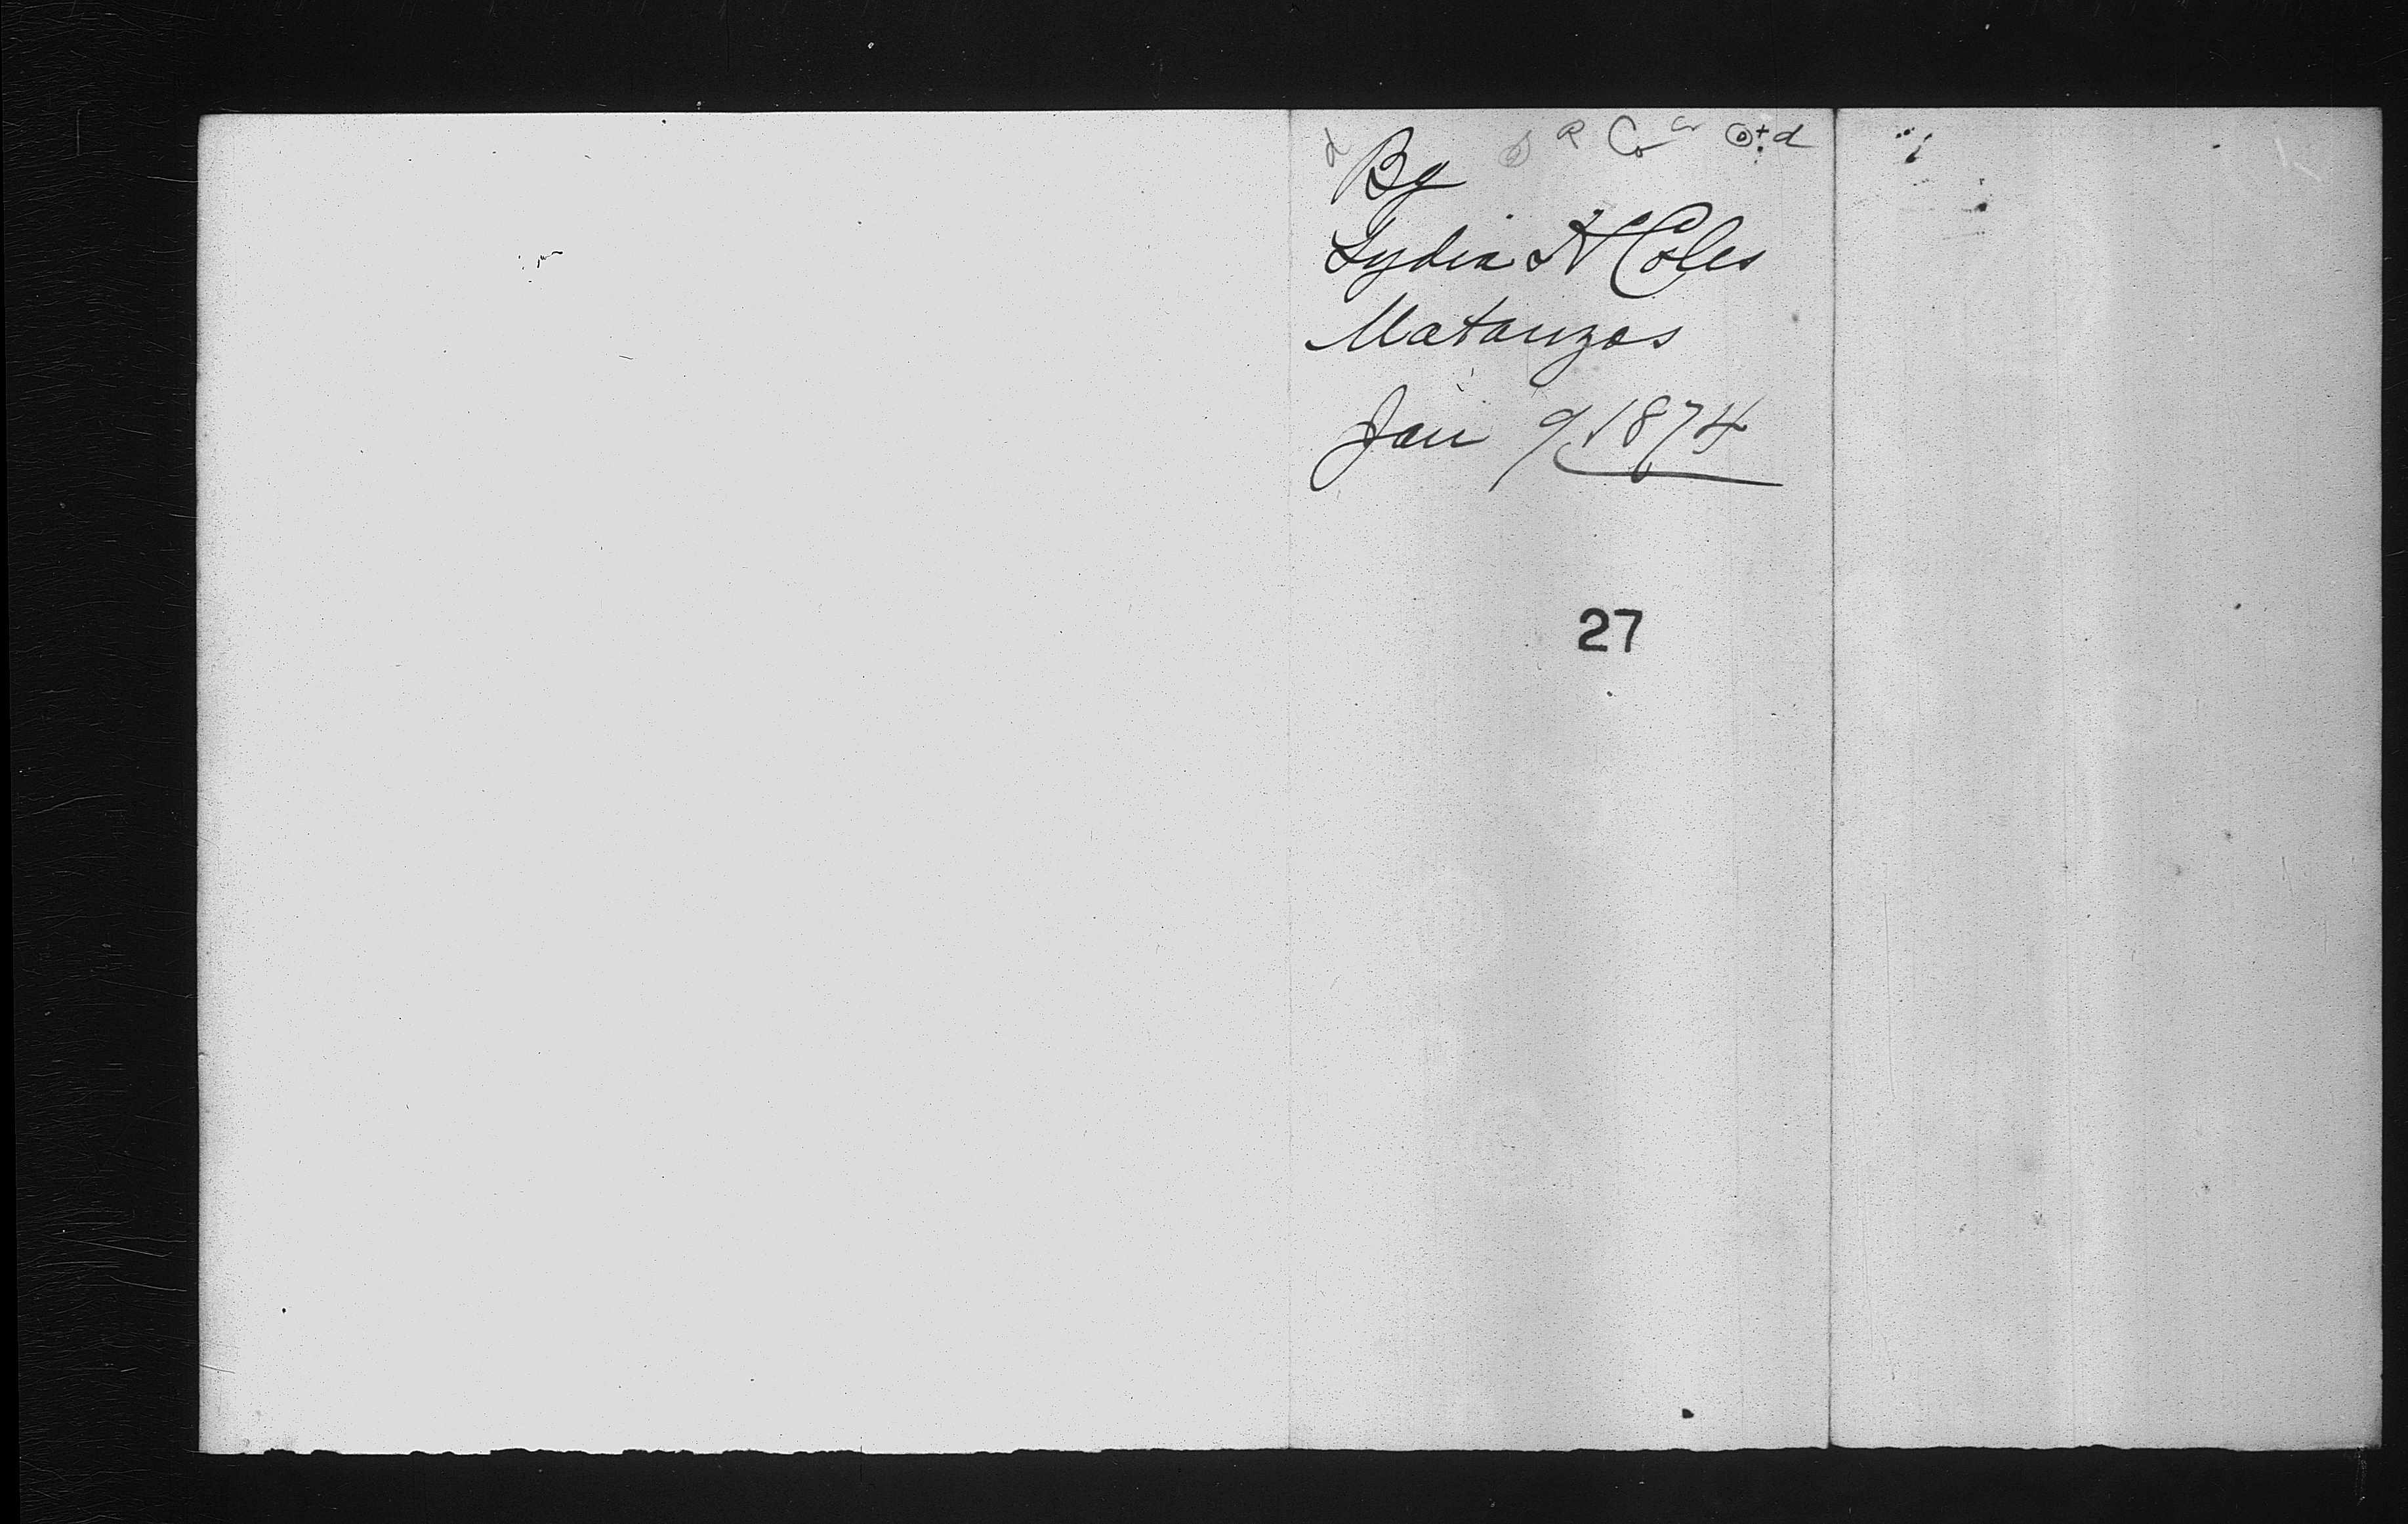 Bg
Lydia H Coles
Matanzas
Jan 9/1874
27